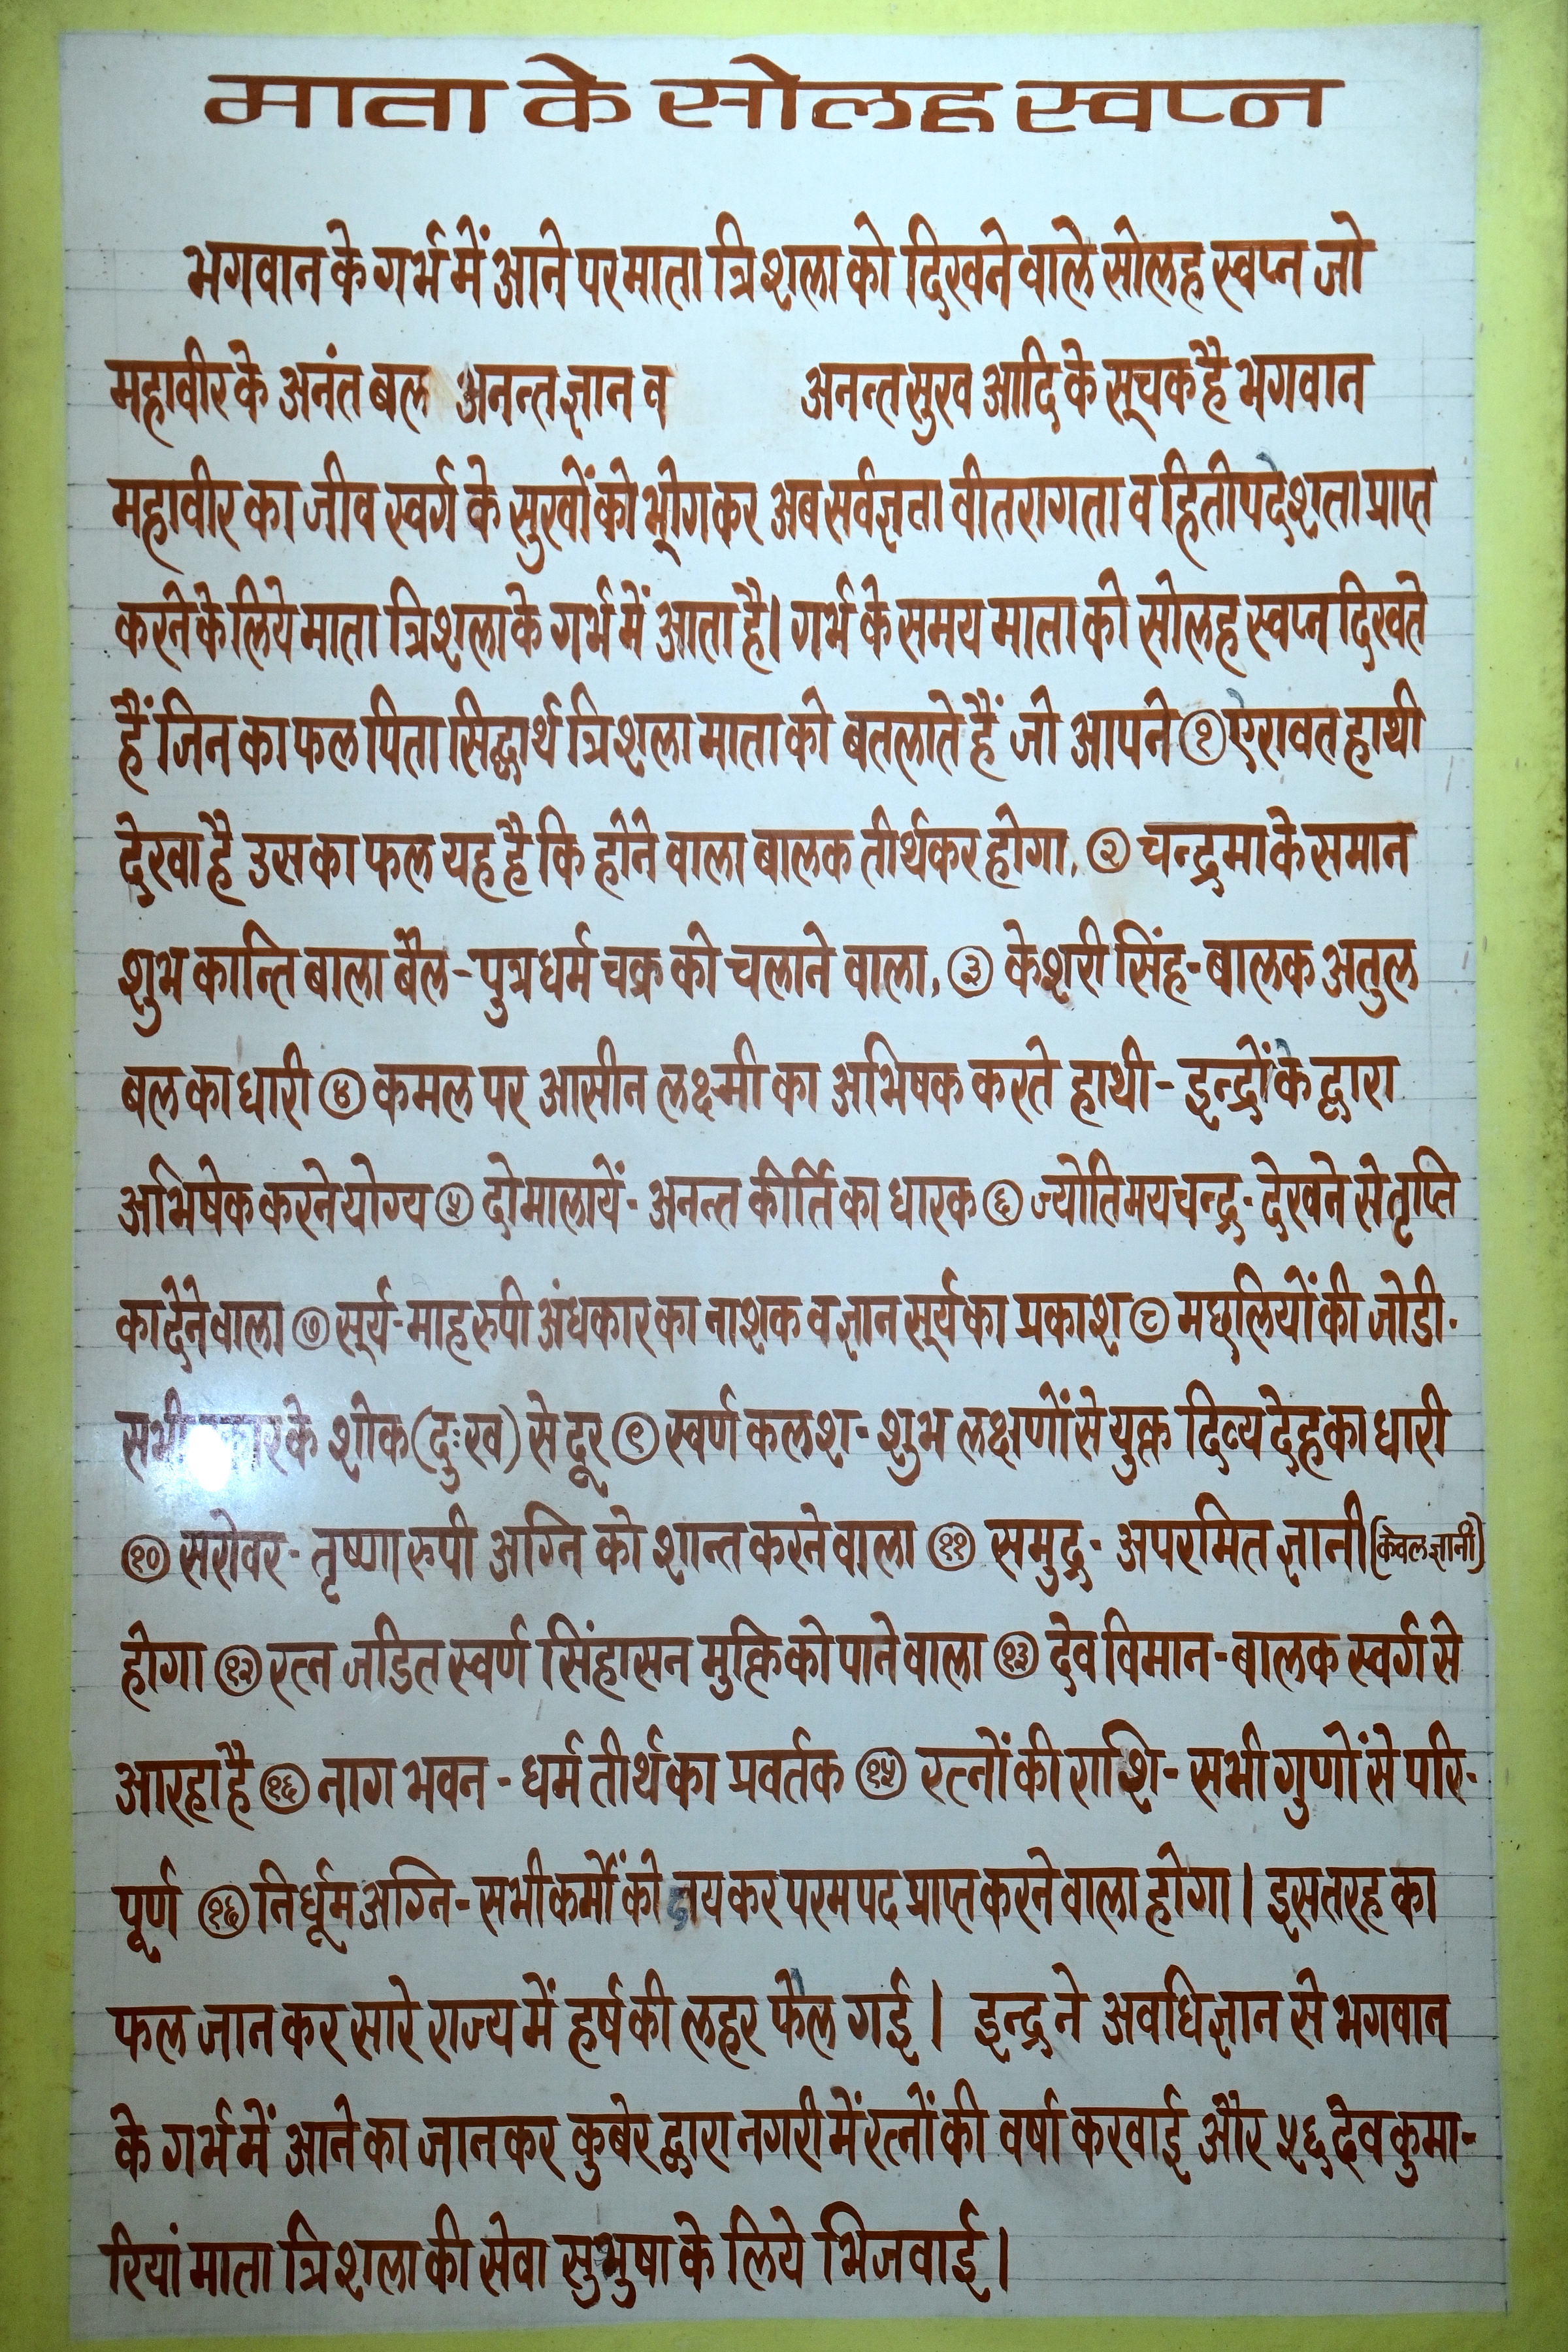 माता के सोलह स्वप्न
भगवान के गर्भ में आने पर माता त्रिशला को दिखने वाले सोलह स्वप्न जो
महावीर के अनंत बल अनन्त ज्ञान व अनन्त सुख आदि के सूचक है भगवान
महावीर का जीव स्वर्ग के सुखों को भोगकर अब सर्वज्ञता वीतरागता व हितोपदेशता प्राप्त
करने के लिये माता त्रिशला के गर्भ में आता है। गर्भ के समय माता को सोलह स्वप्न दिखते
हैं जिनका फल पिता सिद्धार्थ त्रिशला माता को बतलाते हैं जो आपने १ ऐरावत हाथी
देखा है उसका फल यह है कि होने वाला बालक तीर्थकर होगा, २ चन्द्रमा के समान
शुभ कान्ति बाला बैल-पुत्र धर्म चक्र को चलाने वाला, ३ केशरी सिंह-बालक अतुल
बल का धारी ४ कमल पर आसीन लक्ष्मी का अभिषक करते हाथी-इन्द्रों के द्वारा
अभिषेक करने योग्य ५ दो मालायें-अनन्त कीर्ति का धारक ६ ज्योतिमय चन्द्र-देखने से तृप्ति
का देने वाला ७ सूर्य-माह रुपी अंधकार का नाशक व ज्ञान सूर्य का प्रकाश ८ मछलियों की जोडी-
सभी के शोक (दुःख) से दूर ९ स्वर्ण कलश-शुभ लक्षणों से युक्त दिव्य देह का धारी
१० सरोवर-तृष्णा रुपी अग्नि को शान्त करने वाला ११ समुद्र-अपरमित ज्ञानी (केवलज्ञानी)
होगा १२ रत्न जडित स्वर्ण सिंहासन मुक्ति को पाने वाला १३ देव विमान-बालक स्वर्ग से
आरहा है १६ नाग भवन-धर्म तीर्थ का प्रवर्तक १५ रत्नों की राशि-सभी गुणों से परि-
पूर्ण १६ निर्धूम अग्नि-सभी कर्मों को कर परम पद प्राप्त करने वाला होगा। इस तरह का
फल जान कर सारे राज्य में हर्ष की लहर फैल गई। इन्द्र ने अवधिज्ञान से भगवान
के गर्भ में आने का जानकर कुबेर द्वारा नगरी में रत्नों की वर्षा करवाई और ५६ देव कुमा-
रियां माता त्रिशला की सेवा के लिये भिजवाई।